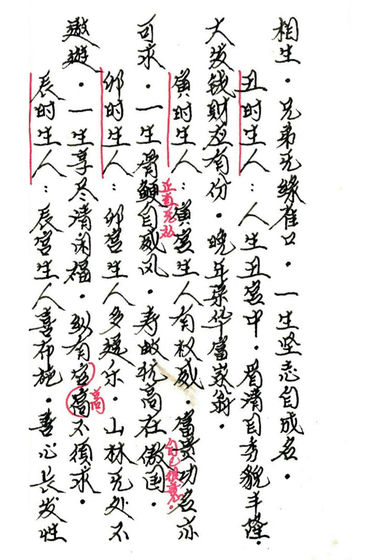 相生。兄弟无缘隹口。一生坚志自成名。
丑时生人：人生丑宫中。骨清自秀貌丰隆。
大发钱财应有份。晚年荣华富家翁。
寅时生人：寅宫生人有权威。富贵功名亦
可求。一生骨鲠自威风。寿故抗高在傲国。
卯时生人：卯宫生人多逸乐。山林无处不
遨遊。一生享尽清闲福。纵有官高不须求。
高
辰时生人：辰宫生人喜布施。善心长发性